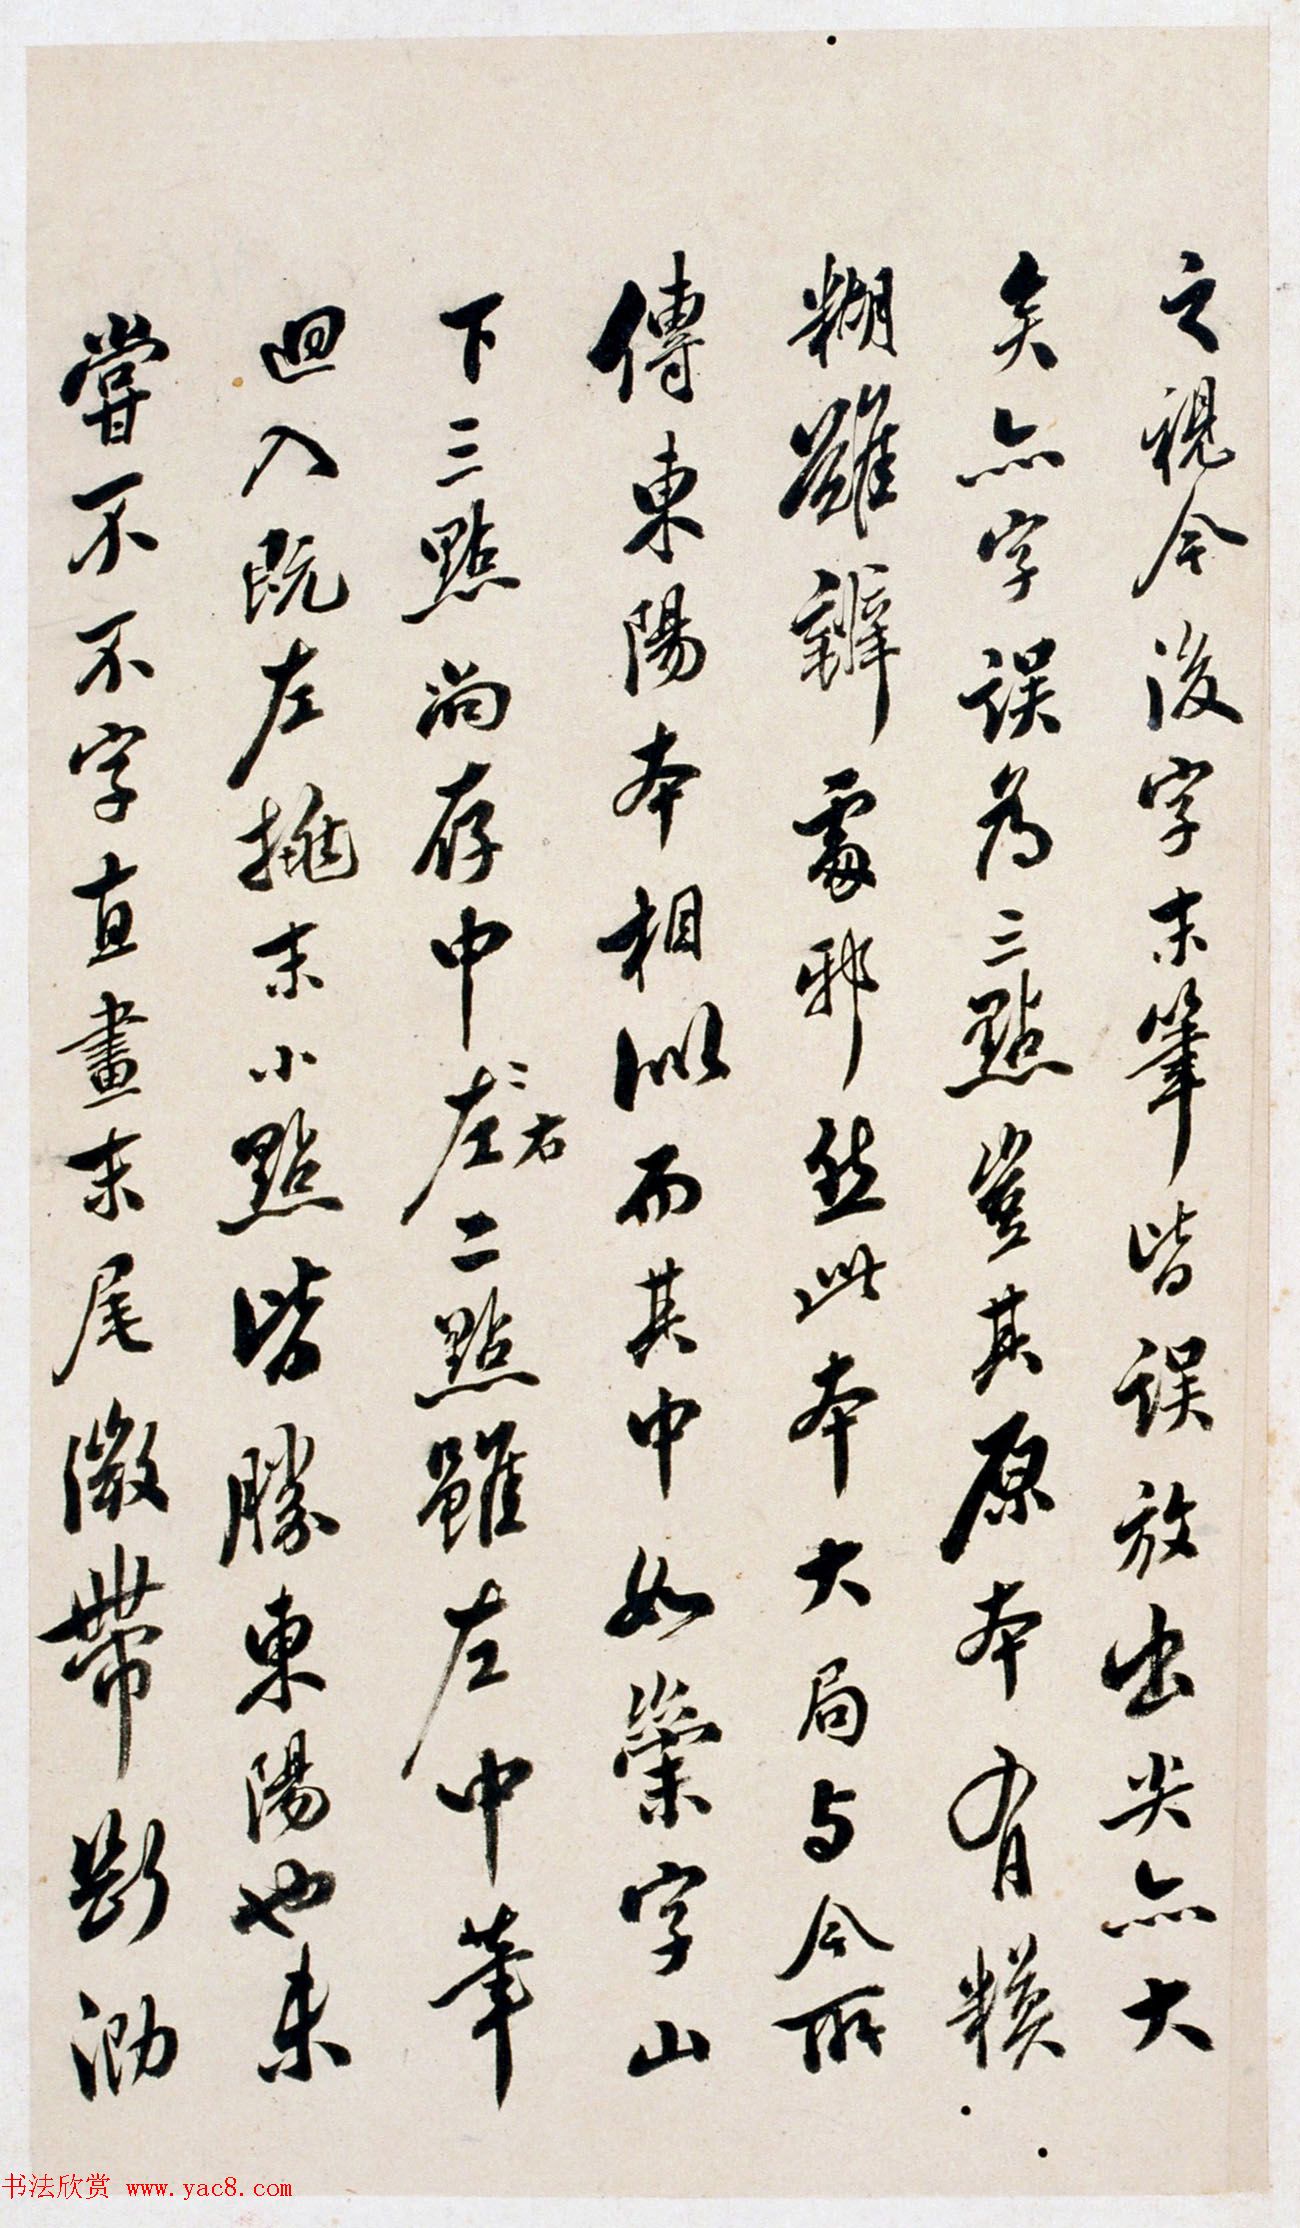 之視今後字末筆皆誤放出尖亦大
矣亦字誤為三點豈其原本有模
糊難辨處邪然此本大局與今所
傳東陽本相似而其中如崇字山
下三點尚存中左二右二點雖左中筆
迴入既左挑末小點皆勝東陽也未
嘗不不字直畫末尾微帶斷泐
书法欣赏 www.yac8.com